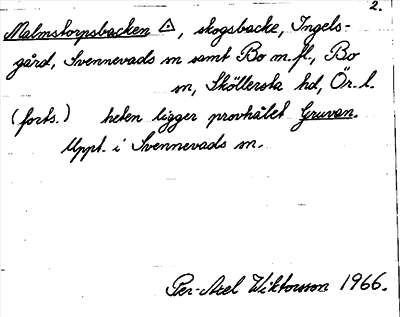 2.
Malmstorpsbacken ◬, skogsbacke, Ingels-
gård, Svennevads sn samt Bo m.fl., Bo
sn, Sköllersta hd, Ör. l.
(forts.) heten ligger provhålet Gruvan.
Uppt. i Svennevads sn.
Per-Axel Wiktorsson 1966.